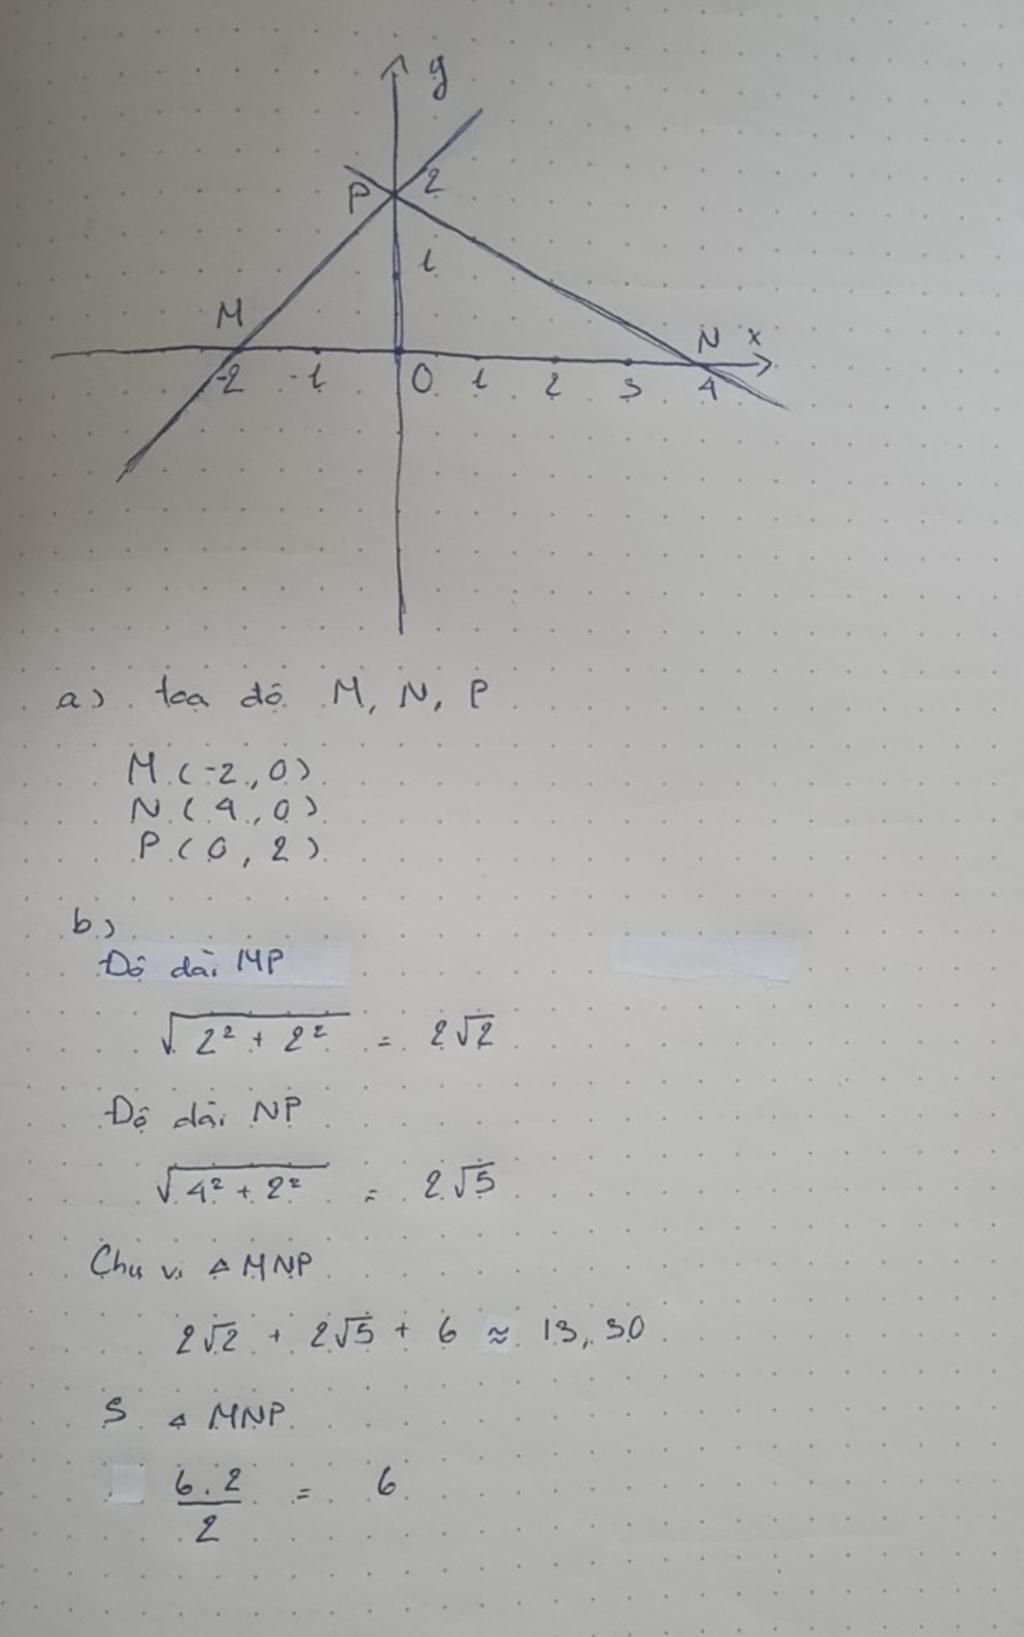 y
P 2
1
M
N x
-2 -1 0 1 2 3 4
a) toạ độ M, N, P
M (-2, 0)
N (4, 0)
P (0, 2)
b)
Độ dài MP
√(2² + 2²) = 2√2
Độ dài NP
√(4² + 2²) = 2√5
Chu vi △ MNP
2√2 + 2√5 + 6 ≈ 13,30
S △ MNP
6.2/2 = 6